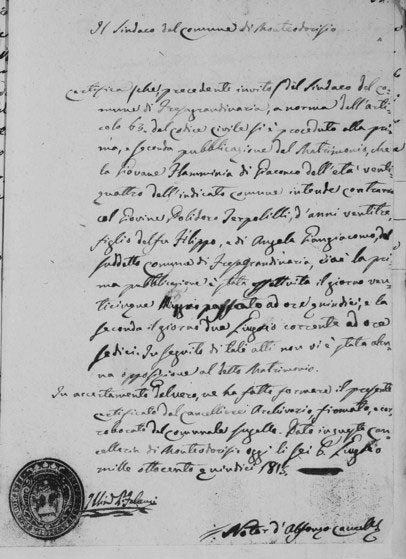 Il Sindaco del comune di Monteodorisio
certifica che, precedente invito del Sindaco del Co-
mune di Fresagrandinaria, a norma dell'arti-
colo 63. del codice civile si è proceduto alla pri-
ma, e seconda pubblicazione del Matrimonio, che
la Giovane Flamminia di Giacomo dell'età venti-
quattro dell'indicato comune intende contrarre
col Giovine Polidoro Terpolilli, d'anni ventitre
figlio del fu Filippo, e di Angela Giangiacomo, del
suddetto comune di Fresagrandinaria, cioè la pri-
ma pubblicazione è stata effettuita il giorno ven-
ticinque passato ad ore quindici, e la
seconda il giorno due Luglio corrente ad ore
sedici. In seguito di tale atti non vi è stata alcu-
na opposizione al detto Matrimonio.
In accertamento del vero, ne ha fatto formare il presente
certificato dal cancelliere Archivario, firmato, e cor-
roborato del comunale sugello. Dato in questa can-
celleria di Monteodorisio oggi li sei 6. Luglio
mille ottocento quindici 1815.
Notar d'Alfonzo